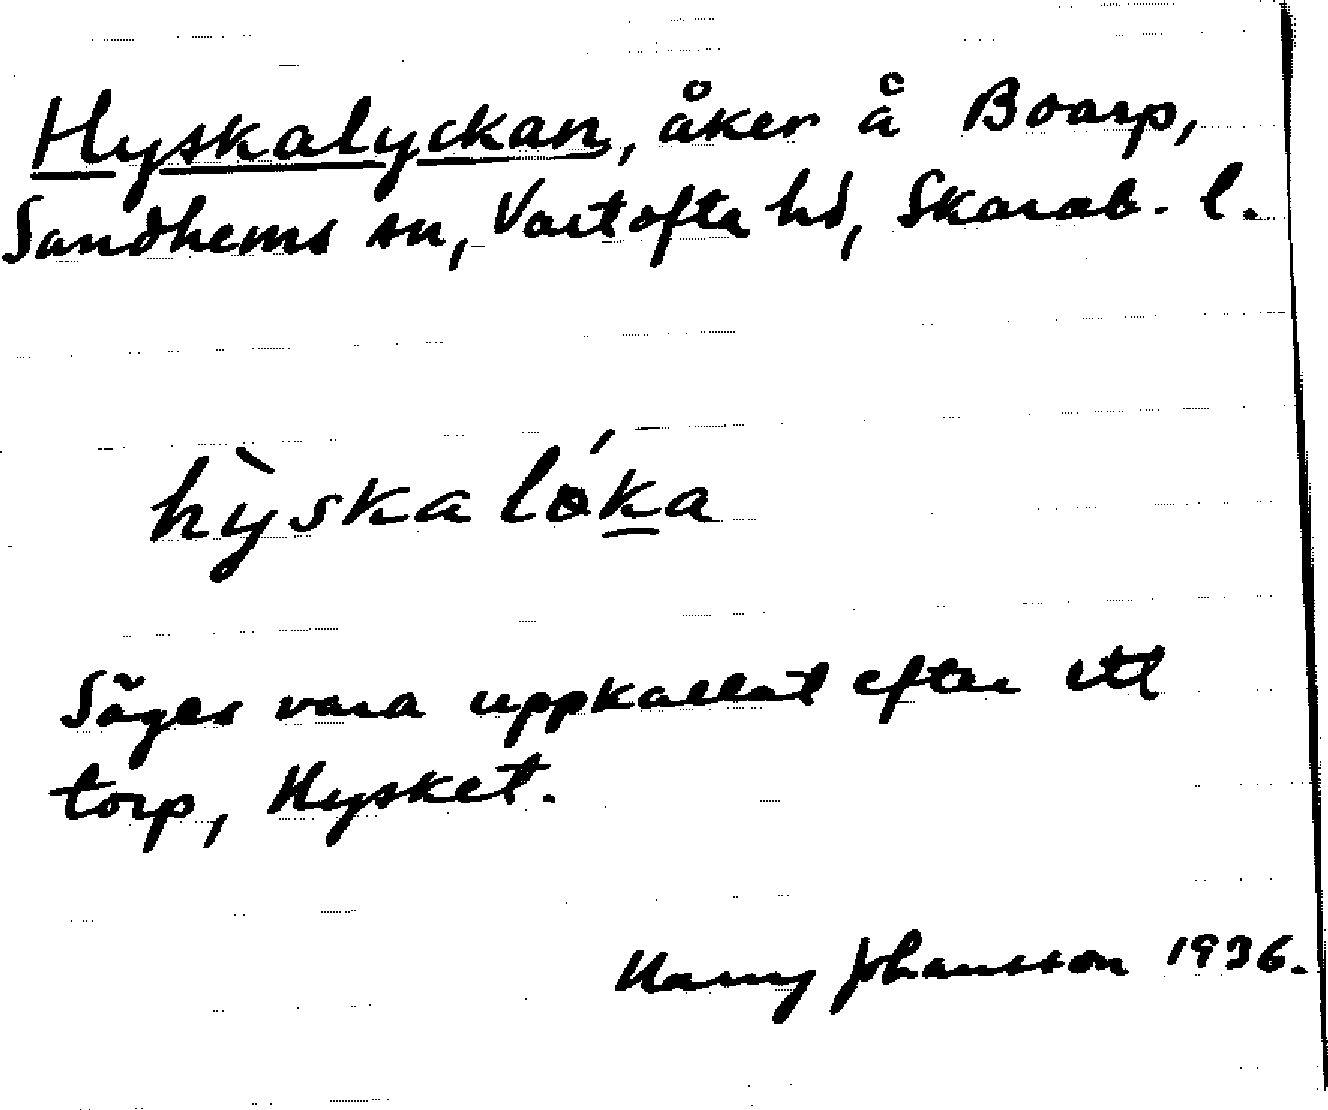 Hyskalyckan, åker å Boarp,
Sandhems sn, Vartofta hd, Skarab. l.
hỳskalók̲a
Säges vara uppkallat efter ett
torp, Hysket.
Harry Johansson 1936.